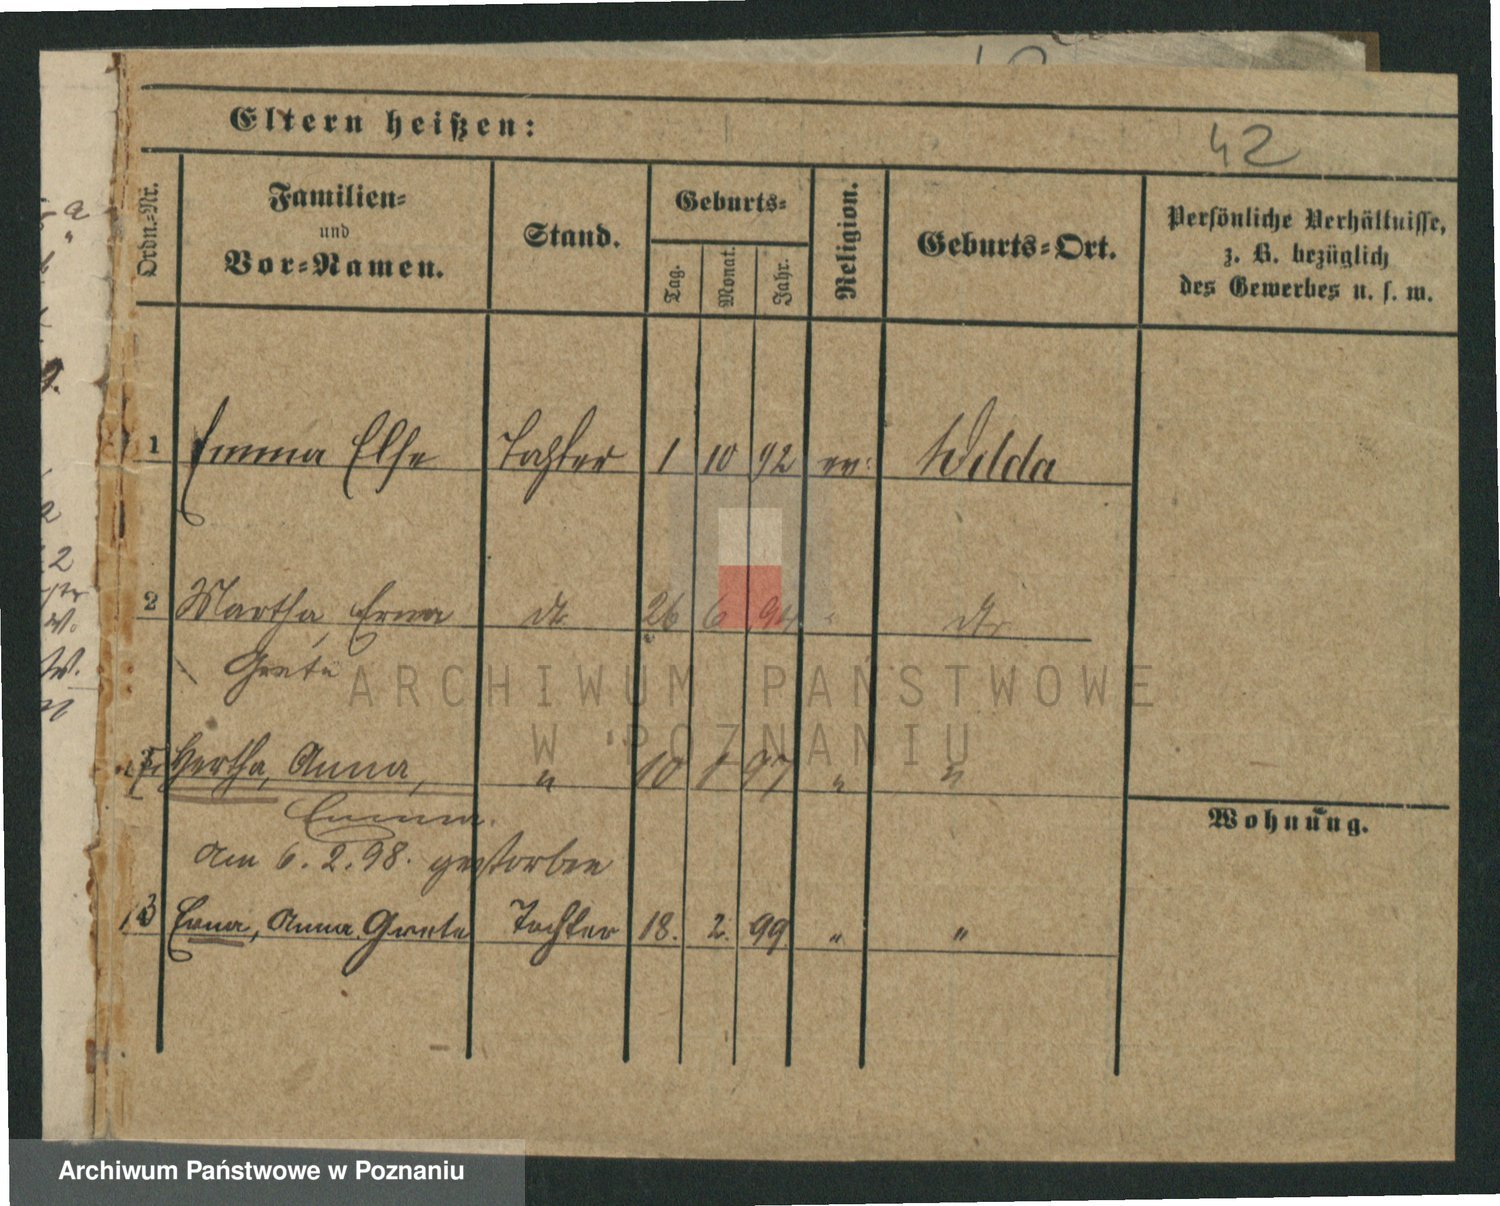 Eltern heißen:
42
Ordn.-Nr.
Familien-
und
Vor-Namen.
Stand.
Geburts-
Tag.
Monat.
Jahr.
Religion.
Geburts-Ort.
Persönliche Verhältnisse,
z. B. bezüglich
des Gewerbes u. s. w.
1 Emma Else Tochter 1 10 92 ev: Wilda
2 Martha, Erna dt. 26 6 94 " dt.
Grete
ARCHIWUM PAŃSTWOWE
W POZNANIU
3 Hertha, Anna, " 10 1 97 " "
Emma.
Wohnung.
am 6. 2. 98. gestorben
3 Erna, Anna Grete Tochter 18. 2. 99 " "
Archiwum Państwowe w Poznaniu